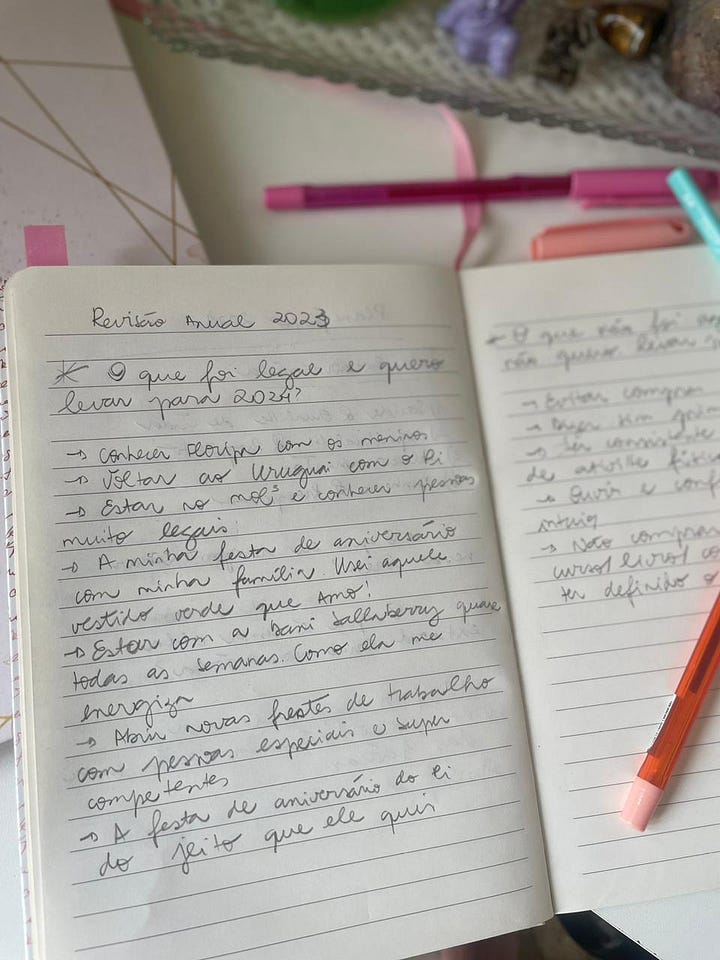 Revisão Anual 2023
* O que foi legal e quero
levar para 2024?
→ Conhecer Floripa com os meninos
→ Voltar ao Uruguai com o Pi
→ Estar no mol³ e conhecer pessoas
muito legais.
→ A minha festa de aniversário
com minha família. Usei aquele
vestido verde que amo!
→ Estar com a Dani Sallaberry quase
todas as semanas. Como ela me
energiza
→ Abrir novas frentes de trabalho
com pessoas especiais e super
competentes
→ A festa de aniversário do Pi
do jeito que ele quis
* O que não foi
não quero levar
→ Evitar compras
→ Fazer
→ Ser consistente
de
→ Ouvir e
→ Não comprar
ter definido o